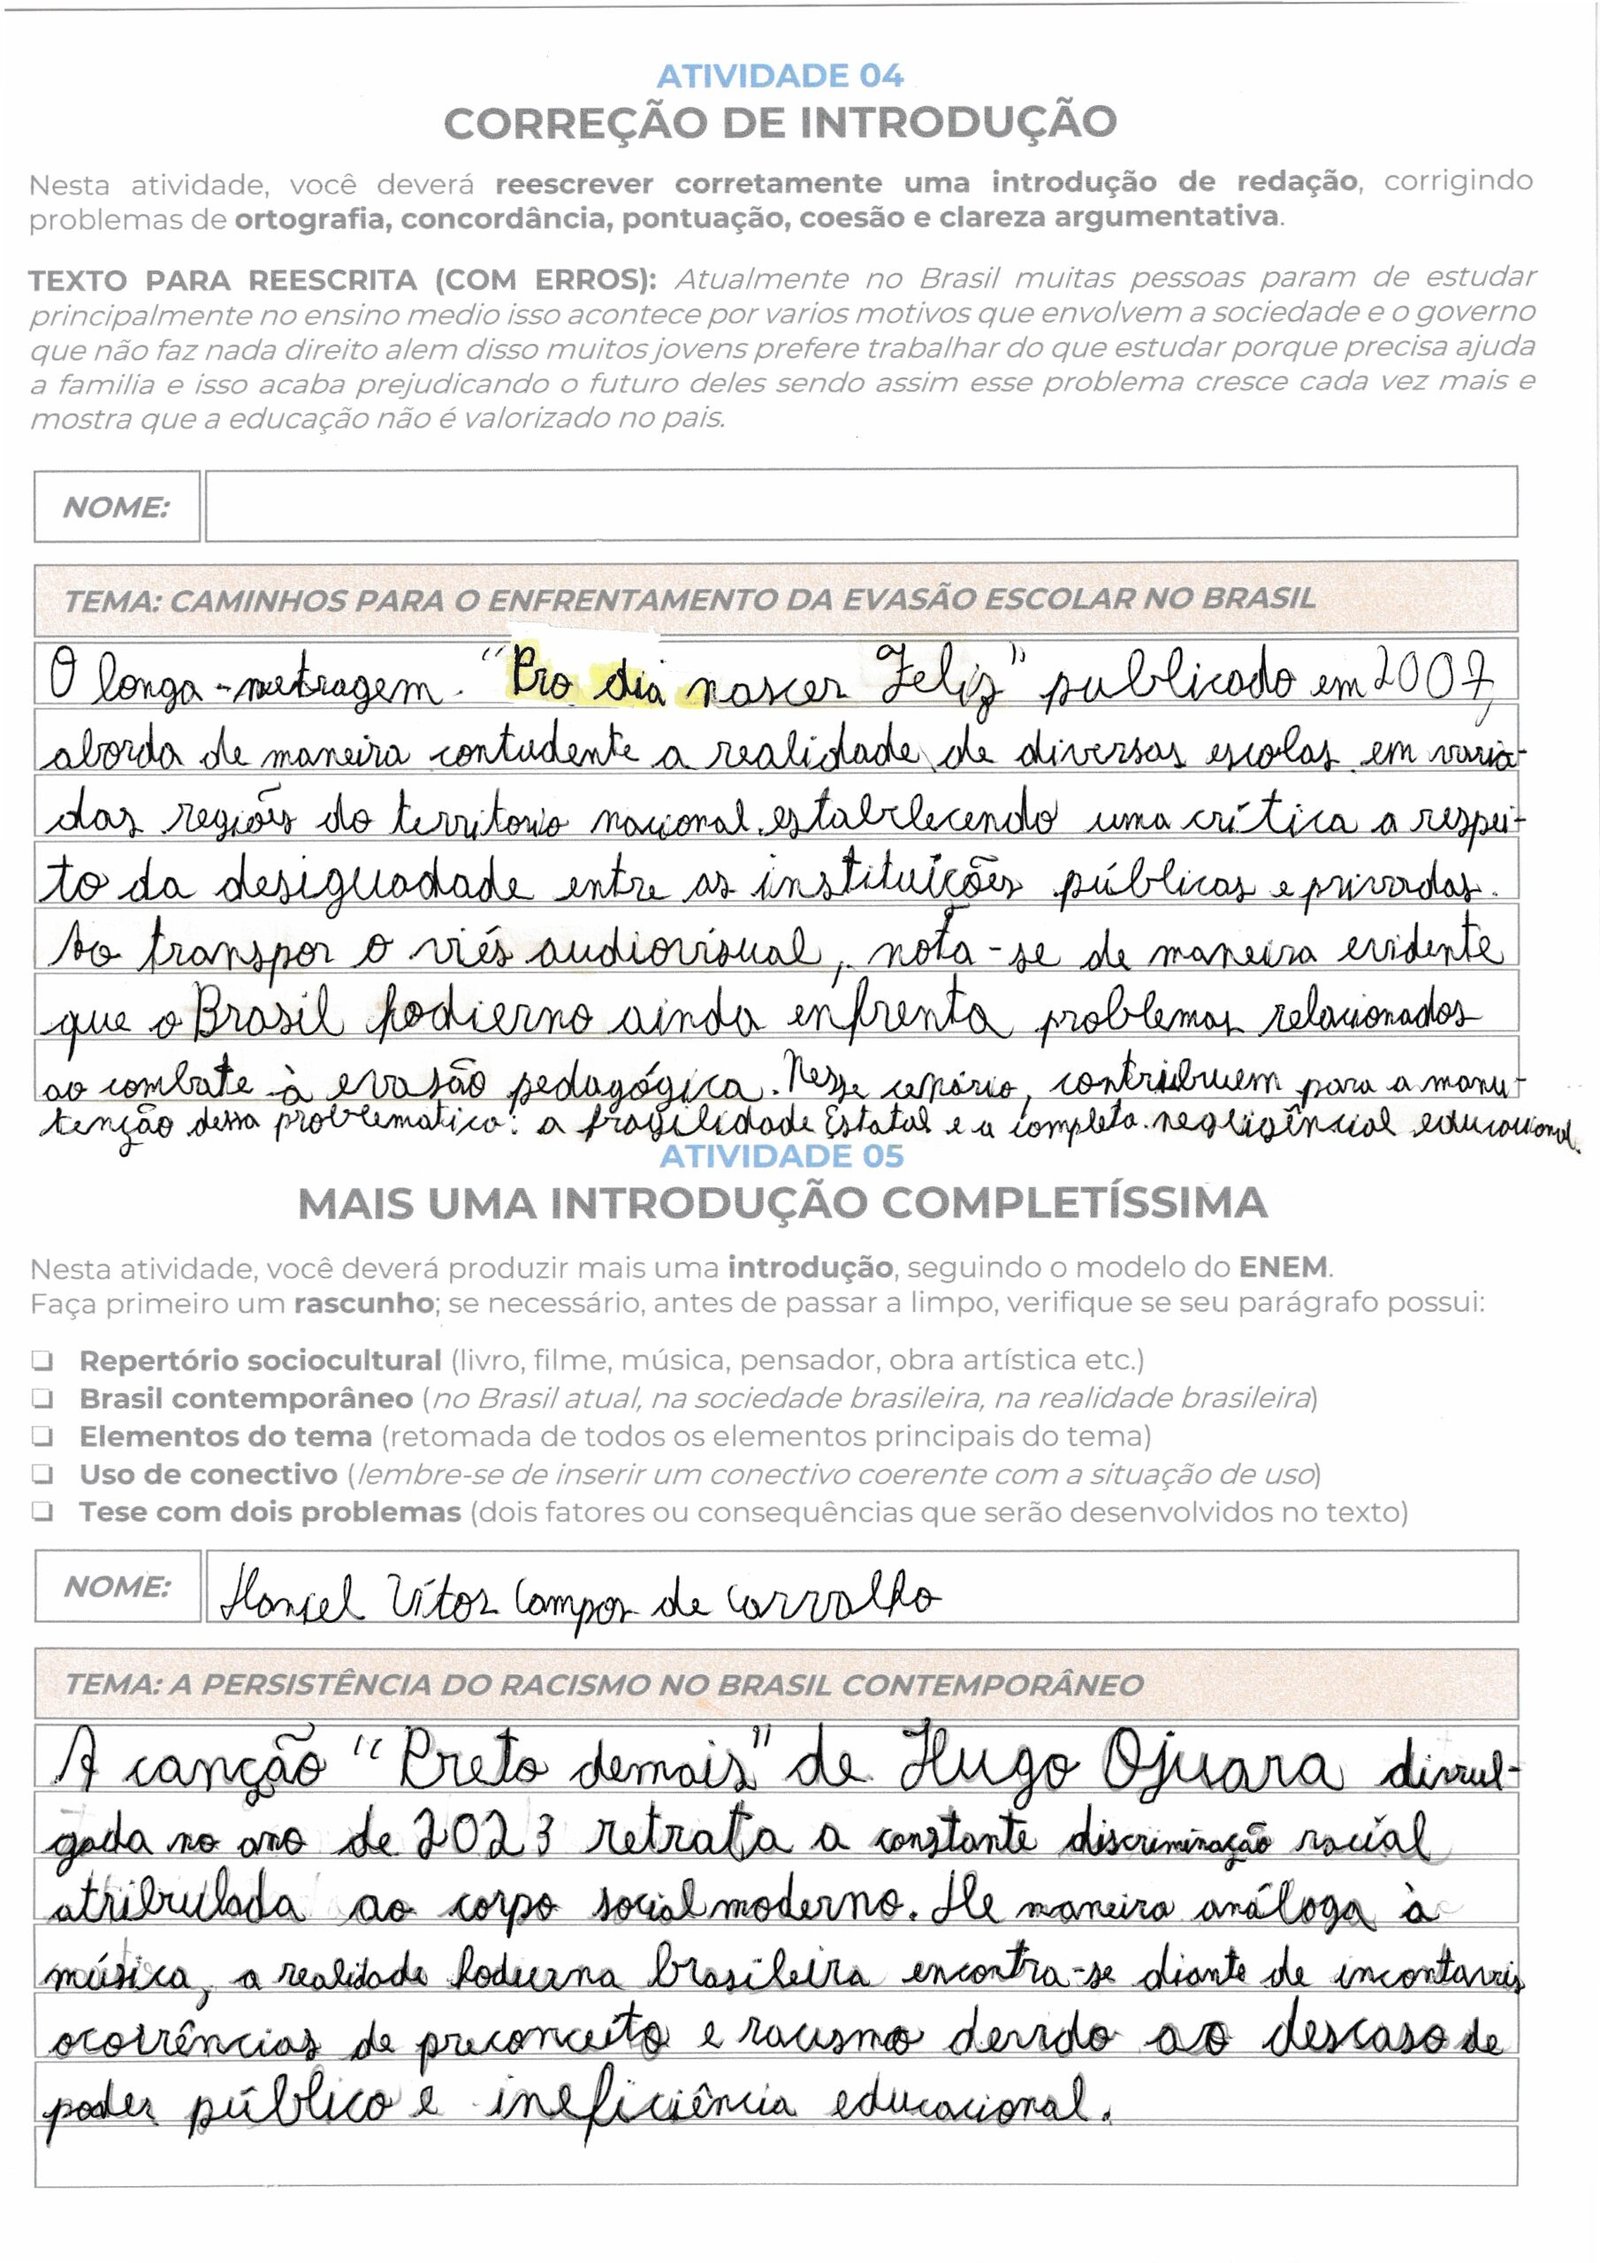 ATIVIDADE 04
CORREÇÃO DE INTRODUÇÃO
Nesta atividade, você deverá reescrever corretamente uma introdução de redação, corrigindo
problemas de ortografia, concordância, pontuação, coesão e clareza argumentativa.
TEXTO PARA REESCRITA (COM ERROS): Atualmente no Brasil muitas pessoas param de estudar
principalmente no ensino medio isso acontece por varios motivos que envolvem a sociedade e o governo
que não faz nada direito alem disso muitos jovens prefere trabalhar do que estudar porque precisa ajuda
a familia e isso acaba prejudicando o futuro deles sendo assim esse problema cresce cada vez mais e
mostra que a educação não é valorizado no pais.
NOME:
TEMA: CAMINHOS PARA O ENFRENTAMENTO DA EVASÃO ESCOLAR NO BRASIL
O longa-metragem "Pro dia nascer Feliz" publicado em 2007,
aborda de maneira contudente a realidade de diversas escolas em varia-
das regiões do territorio nacional estabelecendo uma crítica a respei-
to da desiguadade entre as instituições públicas e privadas.
Ao transpor o viés audiovisual, nota-se de maneira evidente
que o Brasil hodierno ainda enfrenta problemas relacionados
ao combate à evasão pedagógica. Nesse cenário, contribuem para a manu-
tenção dessa problematica: a fragilidade Estatal e a completa negligêncial educacional.
ATIVIDADE 05
MAIS UMA INTRODUÇÃO COMPLETÍSSIMA
Nesta atividade, você deverá produzir mais uma introdução, seguindo o modelo do ENEM.
Faça primeiro um rascunho; se necessário, antes de passar a limpo, verifique se seu parágrafo possui:
❏ Repertório sociocultural (livro, filme, música, pensador, obra artística etc.)
❏ Brasil contemporâneo (no Brasil atual, na sociedade brasileira, na realidade brasileira)
❏ Elementos do tema (retomada de todos os elementos principais do tema)
❏ Uso de conectivo (lembre-se de inserir um conectivo coerente com a situação de uso)
❏ Tese com dois problemas (dois fatores ou consequências que serão desenvolvidos no texto)
NOME: Vítor Campos de Carvalho
TEMA: A PERSISTÊNCIA DO RACISMO NO BRASIL CONTEMPORÂNEO
A canção "Preto demais" de Hugo Ojuara divul-
gada no ano de 2023 retrata a constante discriminação racial
atribulada ao corpo social moderno. De maneira análoga à
música, a realidade hodierna brasileira encontra-se diante de incontaveis
ocorrências de preconceito e racismo devido ao descaso de
poder público e ineficiência educacional.